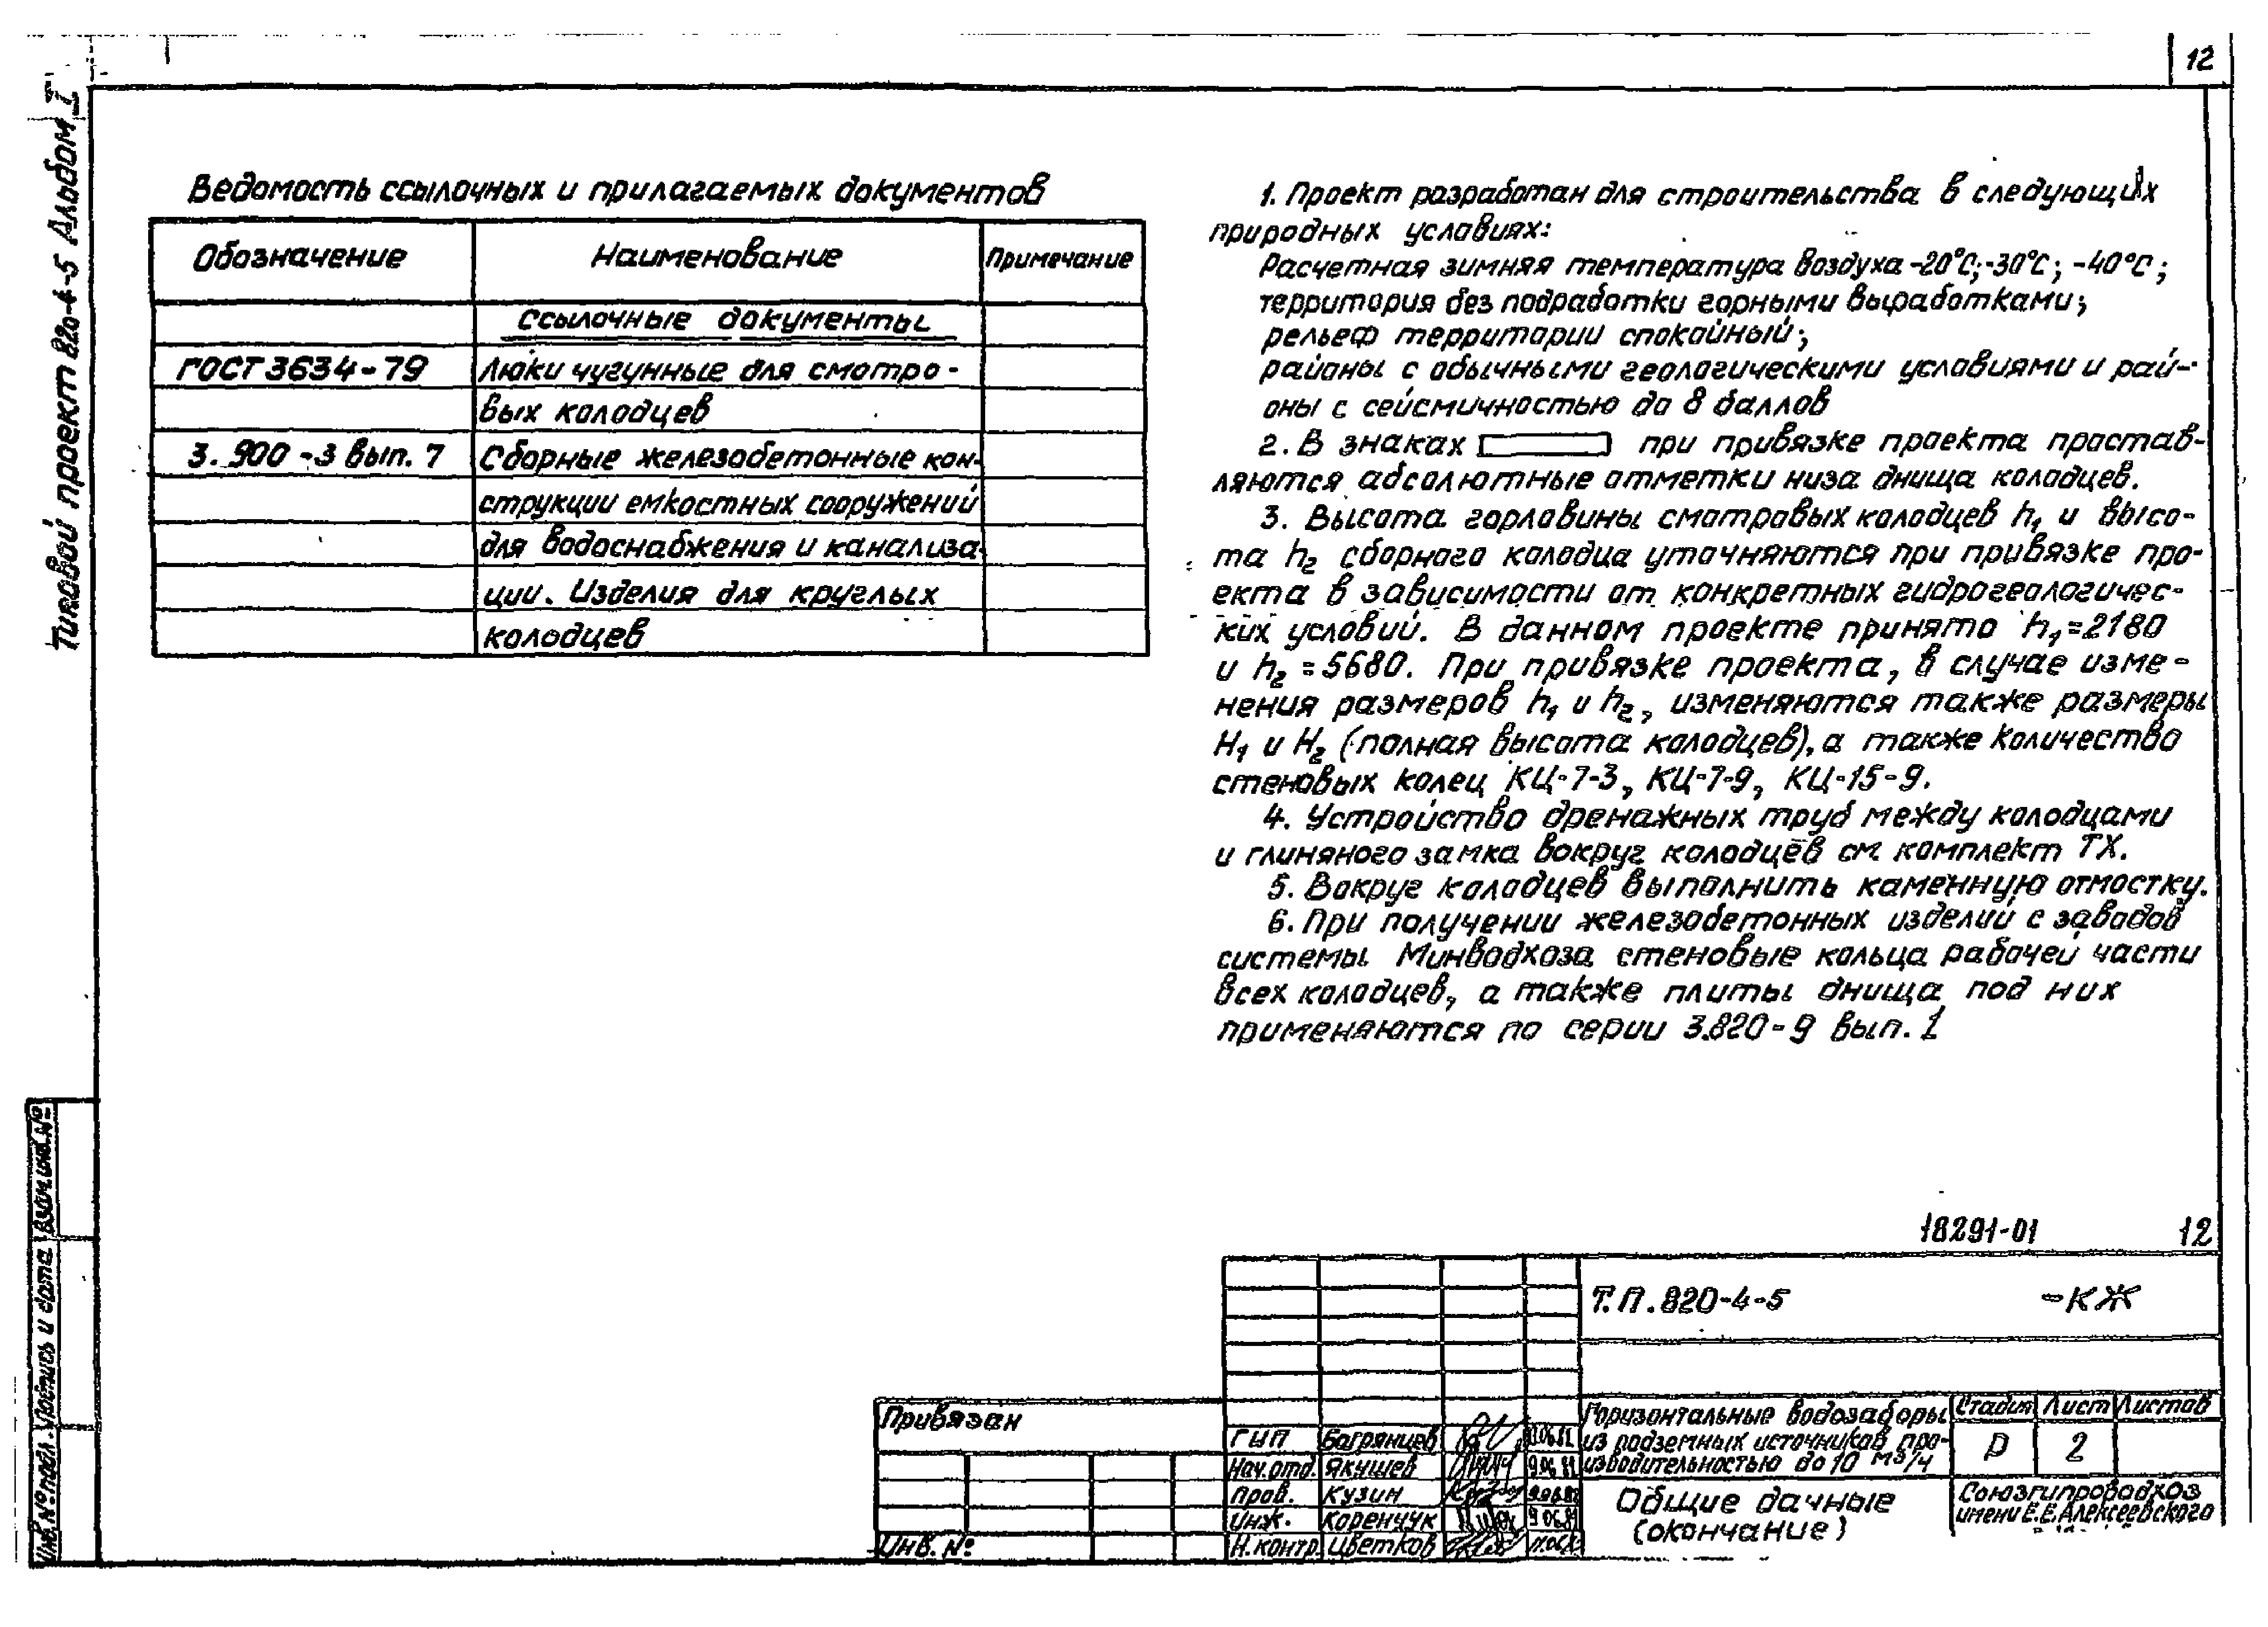 12
Типовой проект 820-4-5 Альбом I
Ведомость ссылочных и прилагаемых документов
Обозначение Наименование Примечание
Ссылочные документы
ГОСТ 3634-79 Люки чугунные для смотро-
вых колодцев
3.900-3 вып. 7 Сборные железобетонные кон-
струкции емкостных сооружений
для водоснабжения и канализа-
ции. Изделия для круглых
колодцев
1. Проект разработан для строительства в следующих
природных условиях:
Расчетная зимняя температура воздуха -20°С; -30°С; -40°С;
территория без подработки горными выработками;
рельеф территории спокойный;
районы с обычными геологическими условиями и рай-
оны с сейсмичностью до 8 баллов
2. В знаках при привязке проекта простав-
ляются абсолютные отметки низа днища колодцев.
3. Высота горловины смотровых колодцев h1 и высо-
та h2 сборного колодца уточняются при привязке про-
екта в зависимости от конкретных гидрогеологичес-
ких условий. В данном проекте принято h1=2180
и h2=5680. При привязке проекта, в случае изме-
нения размеров h1 и h2, изменяются также размеры
H1 и H2 (полная высота колодцев), а также количество
стеновых колец КЦ-7-3, КЦ-7-9, КЦ-15-9.
4. Устройство дренажных труб между колодцами
и глиняного замка вокруг колодцев см. комплект ТХ.
5. Вокруг колодцев выполнить каменную отмостку.
6. При получении железобетонных изделий с заводов
системы Минводхоза стеновые кольца рабочей части
всех колодцев, а также плиты днища под них
применяются по серии 3.820-9 вып. 1
18291-01 12
Т.П. 820-4-5 -КЖ
Привязан
Инв. №
ГИП Багрянцев
Нач. отд. Якушев
Пров. Кузин
Инж. Коренчук
Н. контр. Цветков
Горизонтальные водозаборы
из подземных источников про-
изводительностью до 10 м3/ч
Стадия Лист Листов
Р 2
Общие данные
(окончание)
Союзгипроводхоз
имени Е.Е. Алексеевского
Инв. № подл. Подпись и дата Взам. инв. №